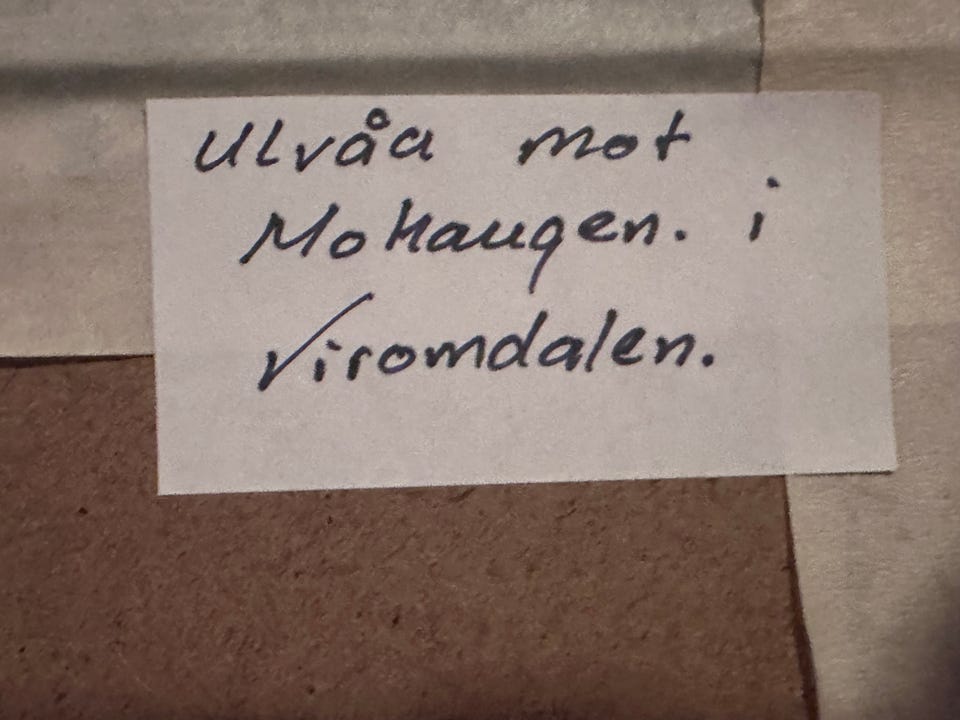 Ulvåa mot
Mohaugen. i
Viromdalen.